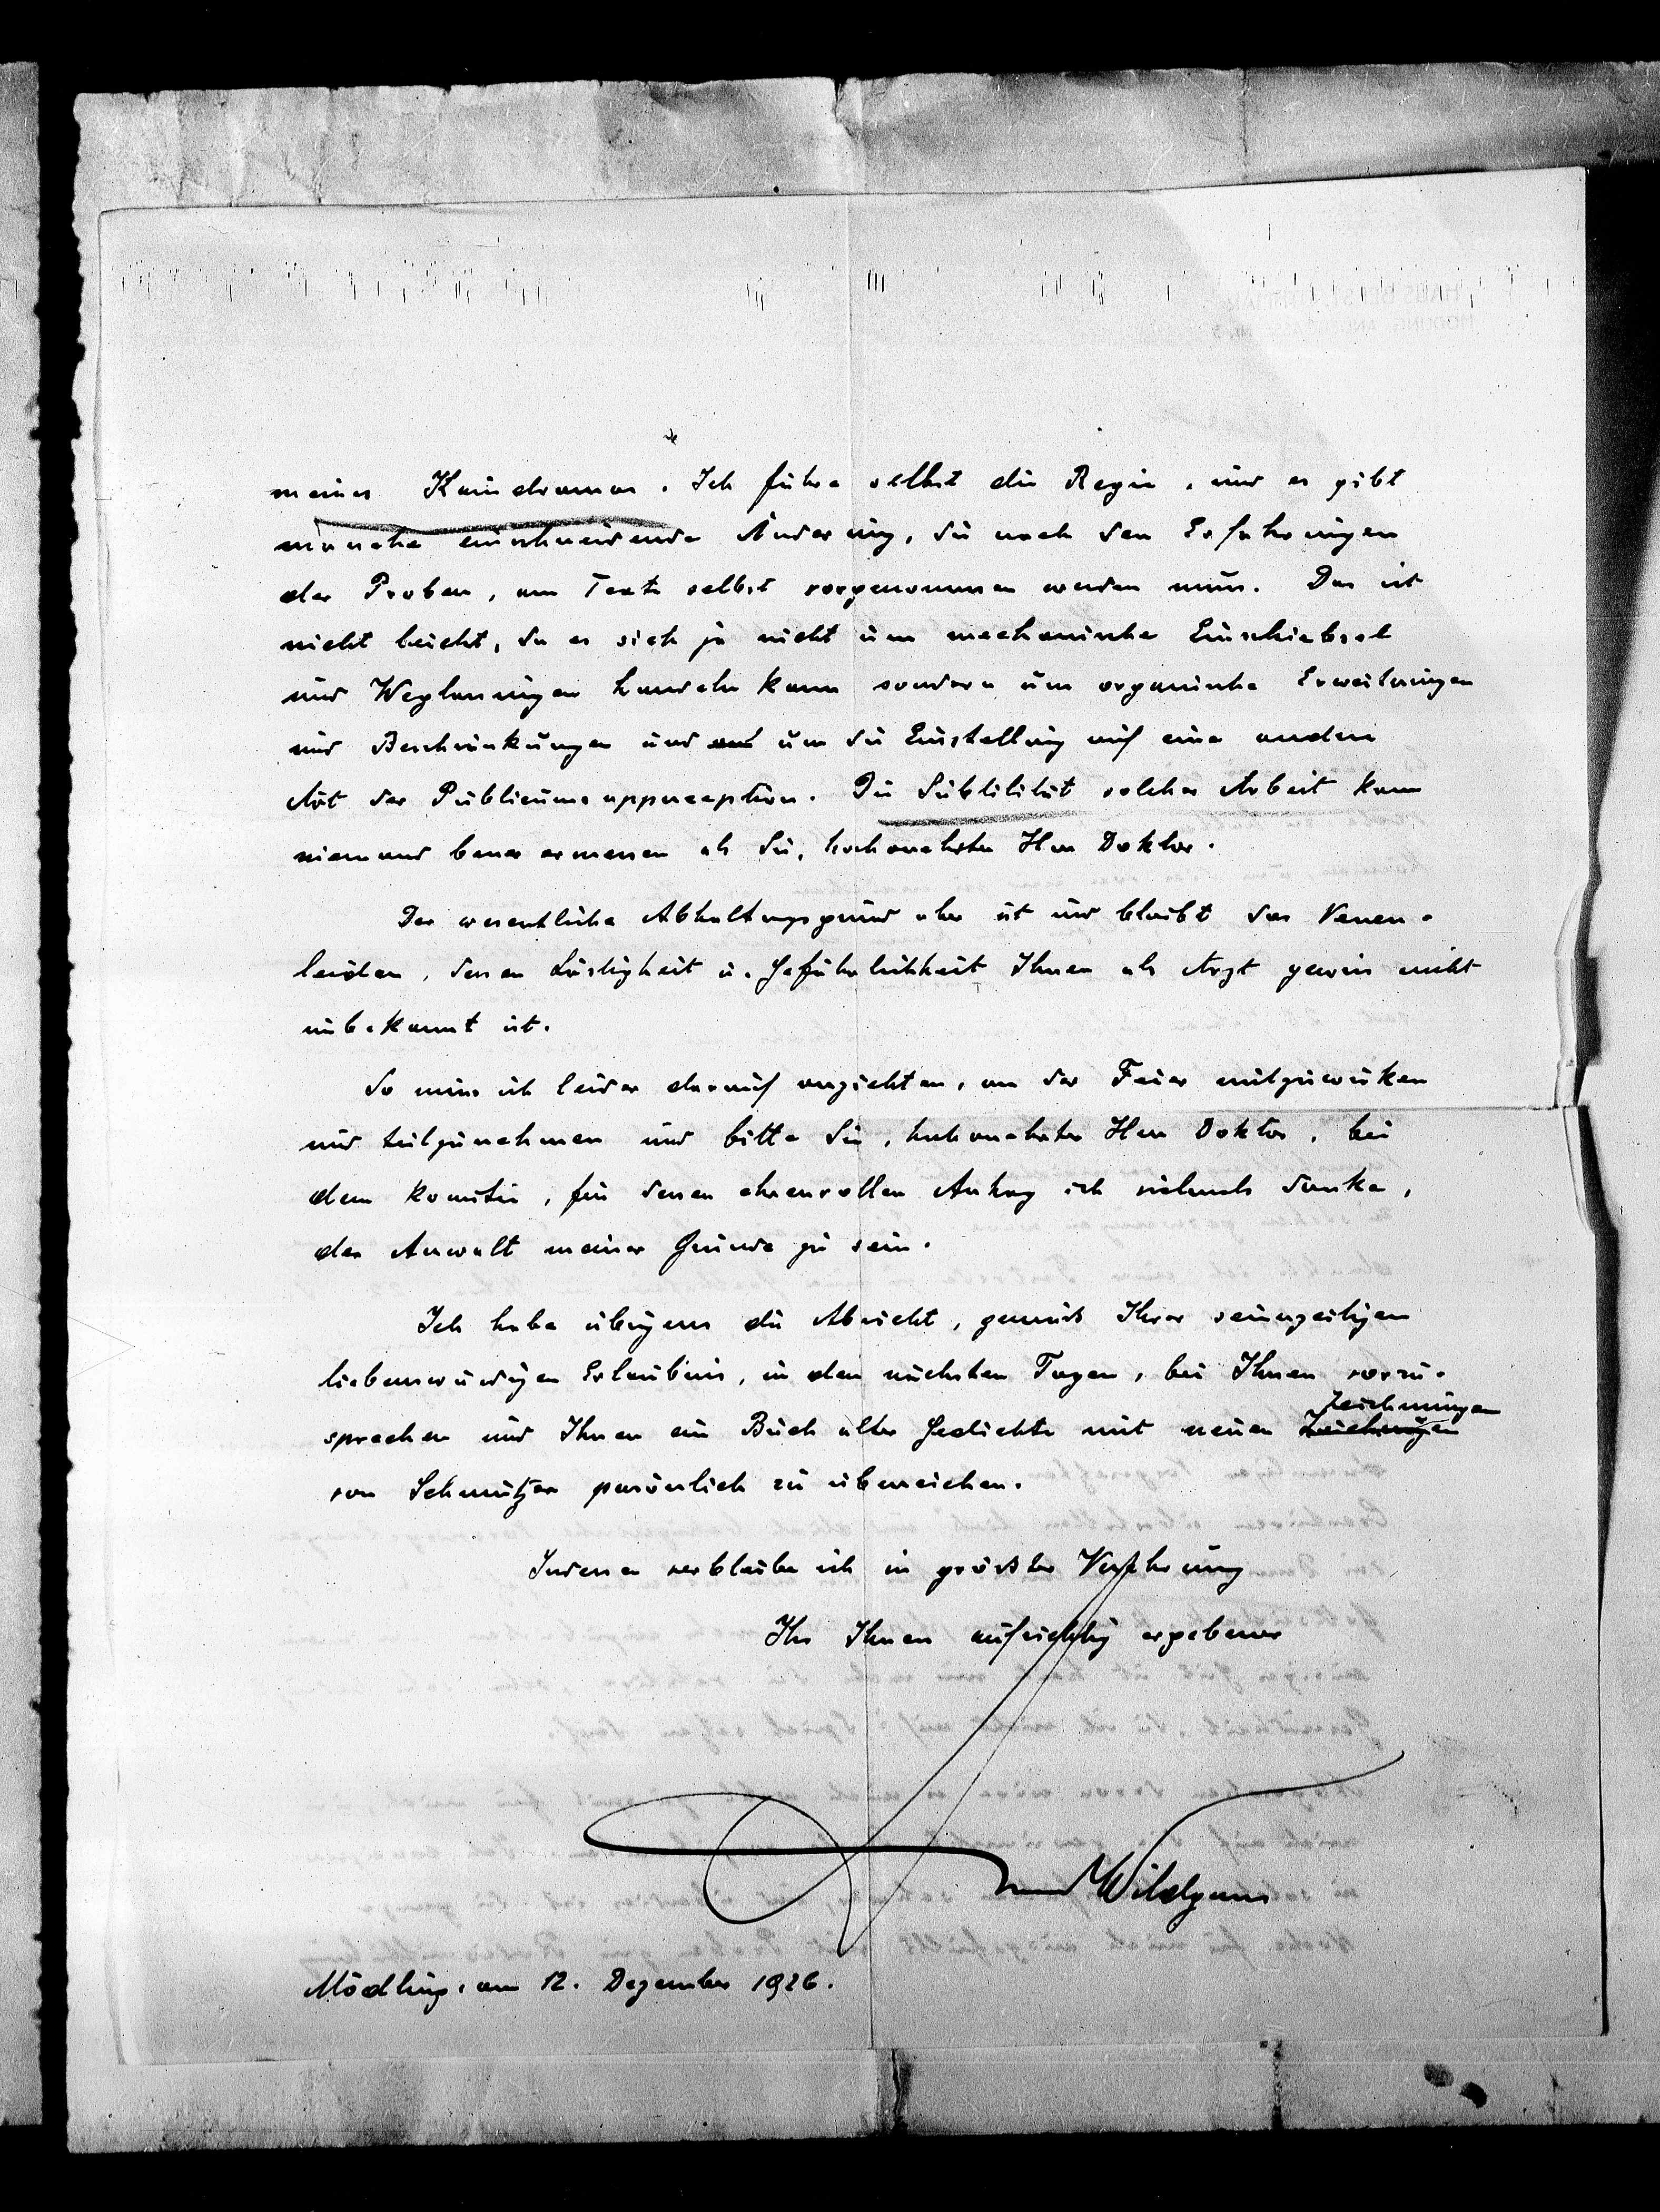 meines Kaindramas. Ich führe selbst die Regie, und es gibt
manche einschneidende Änderung, die nach den Erfahrungen
der Proben, am Texte selbst vorgenommen werden muss. Das ist
nicht leicht, da es sich ja nicht um mechanische Einschiebsel
und Weglassungen handeln kann sondern um organische Erweiterungen
und Beschränkungen und um die Einstellung auf eine andere
Art der Publicumsapperception. Die Subtilität solcher Arbeit kann
niemand besser ermessen als Sie, hochverehrter Herr Doktor.
Der wesentliche Abhaltungsgrund aber ist und bleibt das Venen-
leiden, dessen Lästigkeit u. Gefährlichkeit Ihnen als Arzt gewiss nicht
unbekannt ist.
So muss ich leider darauf verzichten, an der Feier mitzuwirken
und teilzunehmen und bitte Sie, hochverehrter Herr Doktor, bei
dem Komitée, für dessen ehrenvollen Antrag ich vielmals danke,
der Anwalt meiner Gründe zu sein.
Ich habe übrigens die Absicht, gemäss Ihrer seinerzeitigen
liebenswürdigen Erlaubnis, in den nächsten Tagen, bei Ihnen vorzu-
sprechen und Ihnen ein Buch alter Gedichte mit neuen Zeichnungen
Zeichnungen
von Schmutzer persönlich zu überreichen.
Indessen verbleibe ich in grösster Verehrung
Ihr Ihnen aufrichtig ergebener
Anton Wildgans
Mödling, am 12. Dezember 1926.